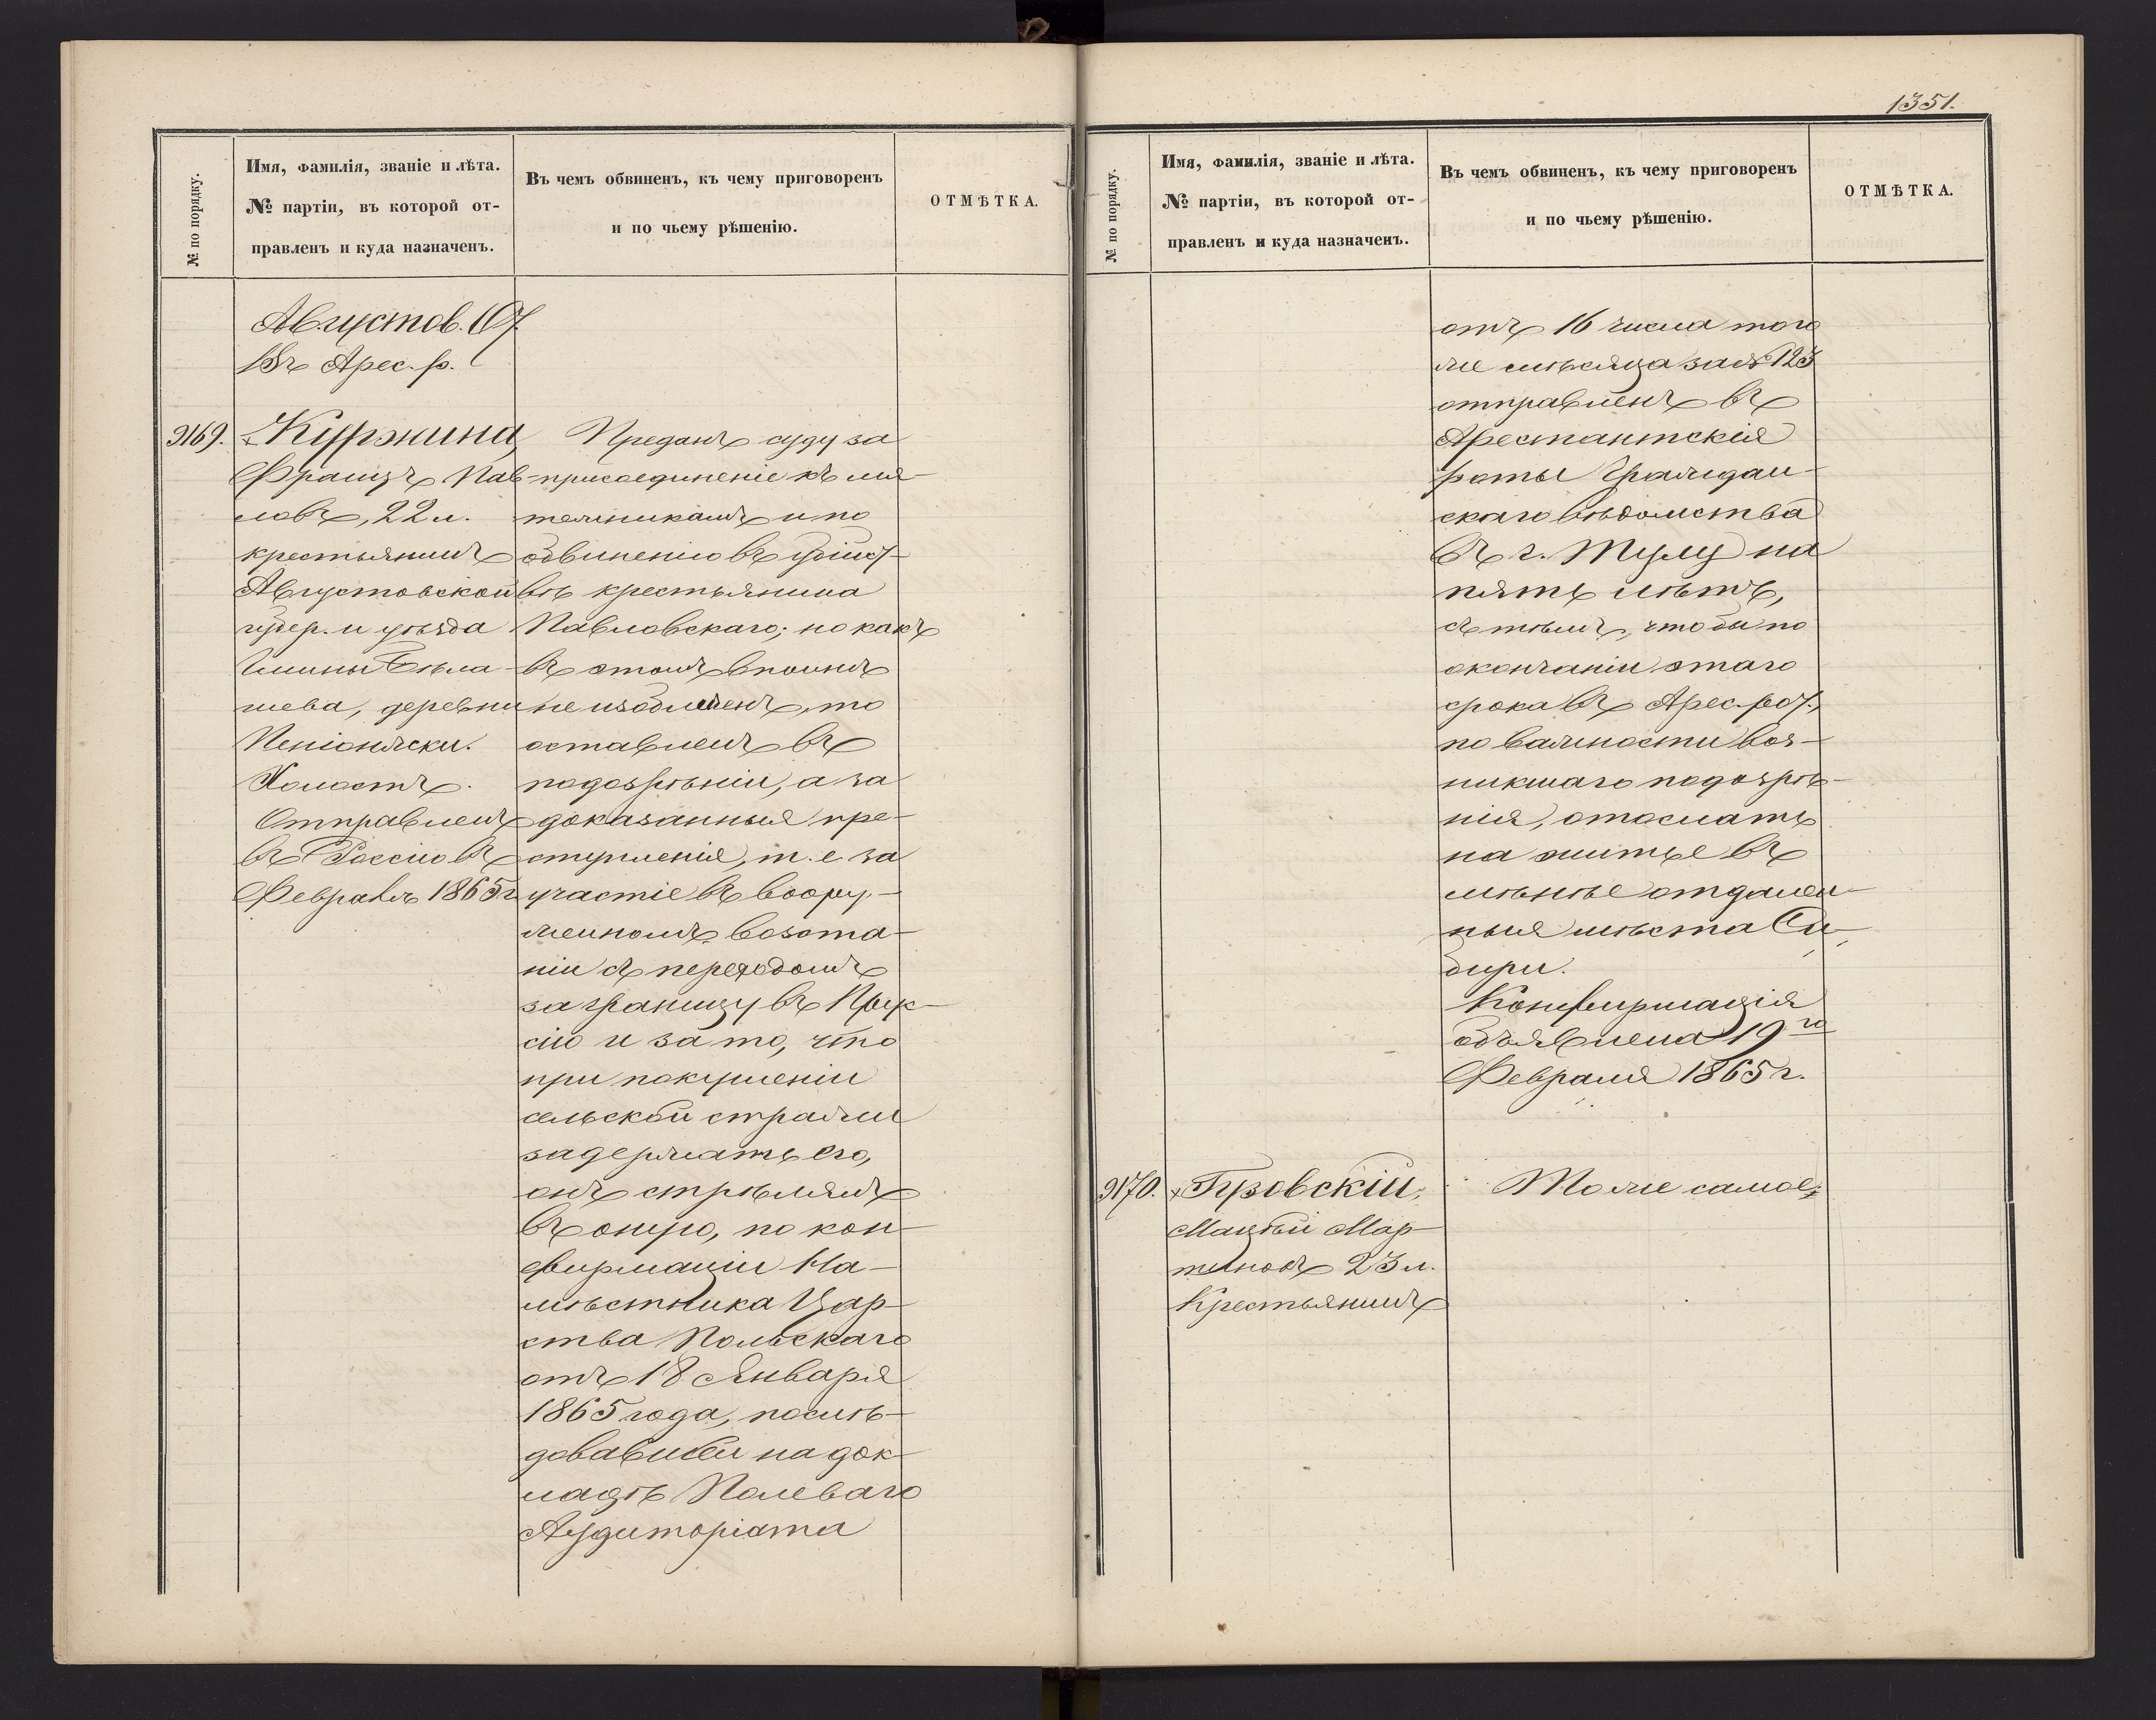 1351.
№ по порядку.
Имя, фамилія, званіе и лѣта.
№ партіи, въ которой от-
правленъ и куда назначенъ.
Въ чемъ обвиненъ, къ чему приговоренъ
и по чьему рѣшенію.
ОТМѢТКА.
Августов.
Въ Арес. р.
9169.
Куржина,
Францъ Пав-
ловъ, 22 л.
крестьянинъ
Августовской
губер. и уѣзда
Гмины
деревни
Холостъ.
Отправленъ
въ Россію въ
Февралѣ 1865 г.
Преданъ суду за
присоединеніе къ мя-
тежникамъ и по
обвиненію въ убійст-
вѣ крестьянина
Павловскаго; но какъ
въ этомъ вполнѣ
не изобличенъ, то
оставленъ въ
подозрѣніи, а за
доказанныя пре-
ступленія, т. е. за
участіе въ воору-
женномъ возста-
ніи съ переходомъ
за границу въ Прус-
сію и за то, что
при покушеніи
сельской стражи
задержать его,
онъ стрѣлялъ
въ оную, по кон-
фирмаціи На-
мѣстника Цар-
ства Польскаго
отъ 18 Января
1865 года, послѣ-
довавшей на док-
ладѣ Полеваго
Аудиторіата
№ по порядку.
Имя, фамилія, званіе и лѣта.
№ партіи, въ которой от-
правленъ и куда назначенъ.
Въ чемъ обвиненъ, къ чему приговоренъ
и по чьему рѣшенію.
ОТМѢТКА.
отъ 16 числа того
же мѣсяца за № 123
отправленъ въ
Арестантскія
роты Граждан-
скаго вѣдомства
въ г. Тулу на
пять лѣтъ,
съ тѣмъ, чтобы по
окончаніи этаго
срока въ Арес. рот.,
по важности воз-
никшаго подозрѣ-
нія, отослать
на житье въ
менѣе отдален-
ныя мѣста Си-
бири.
Конфирмація
объявлена 19го
Февраля 1865 г.
9170.
Гузовскій,
Мацѣй Мар-
тиновъ 23 л.
Крестьянинъ
Тоже самое;